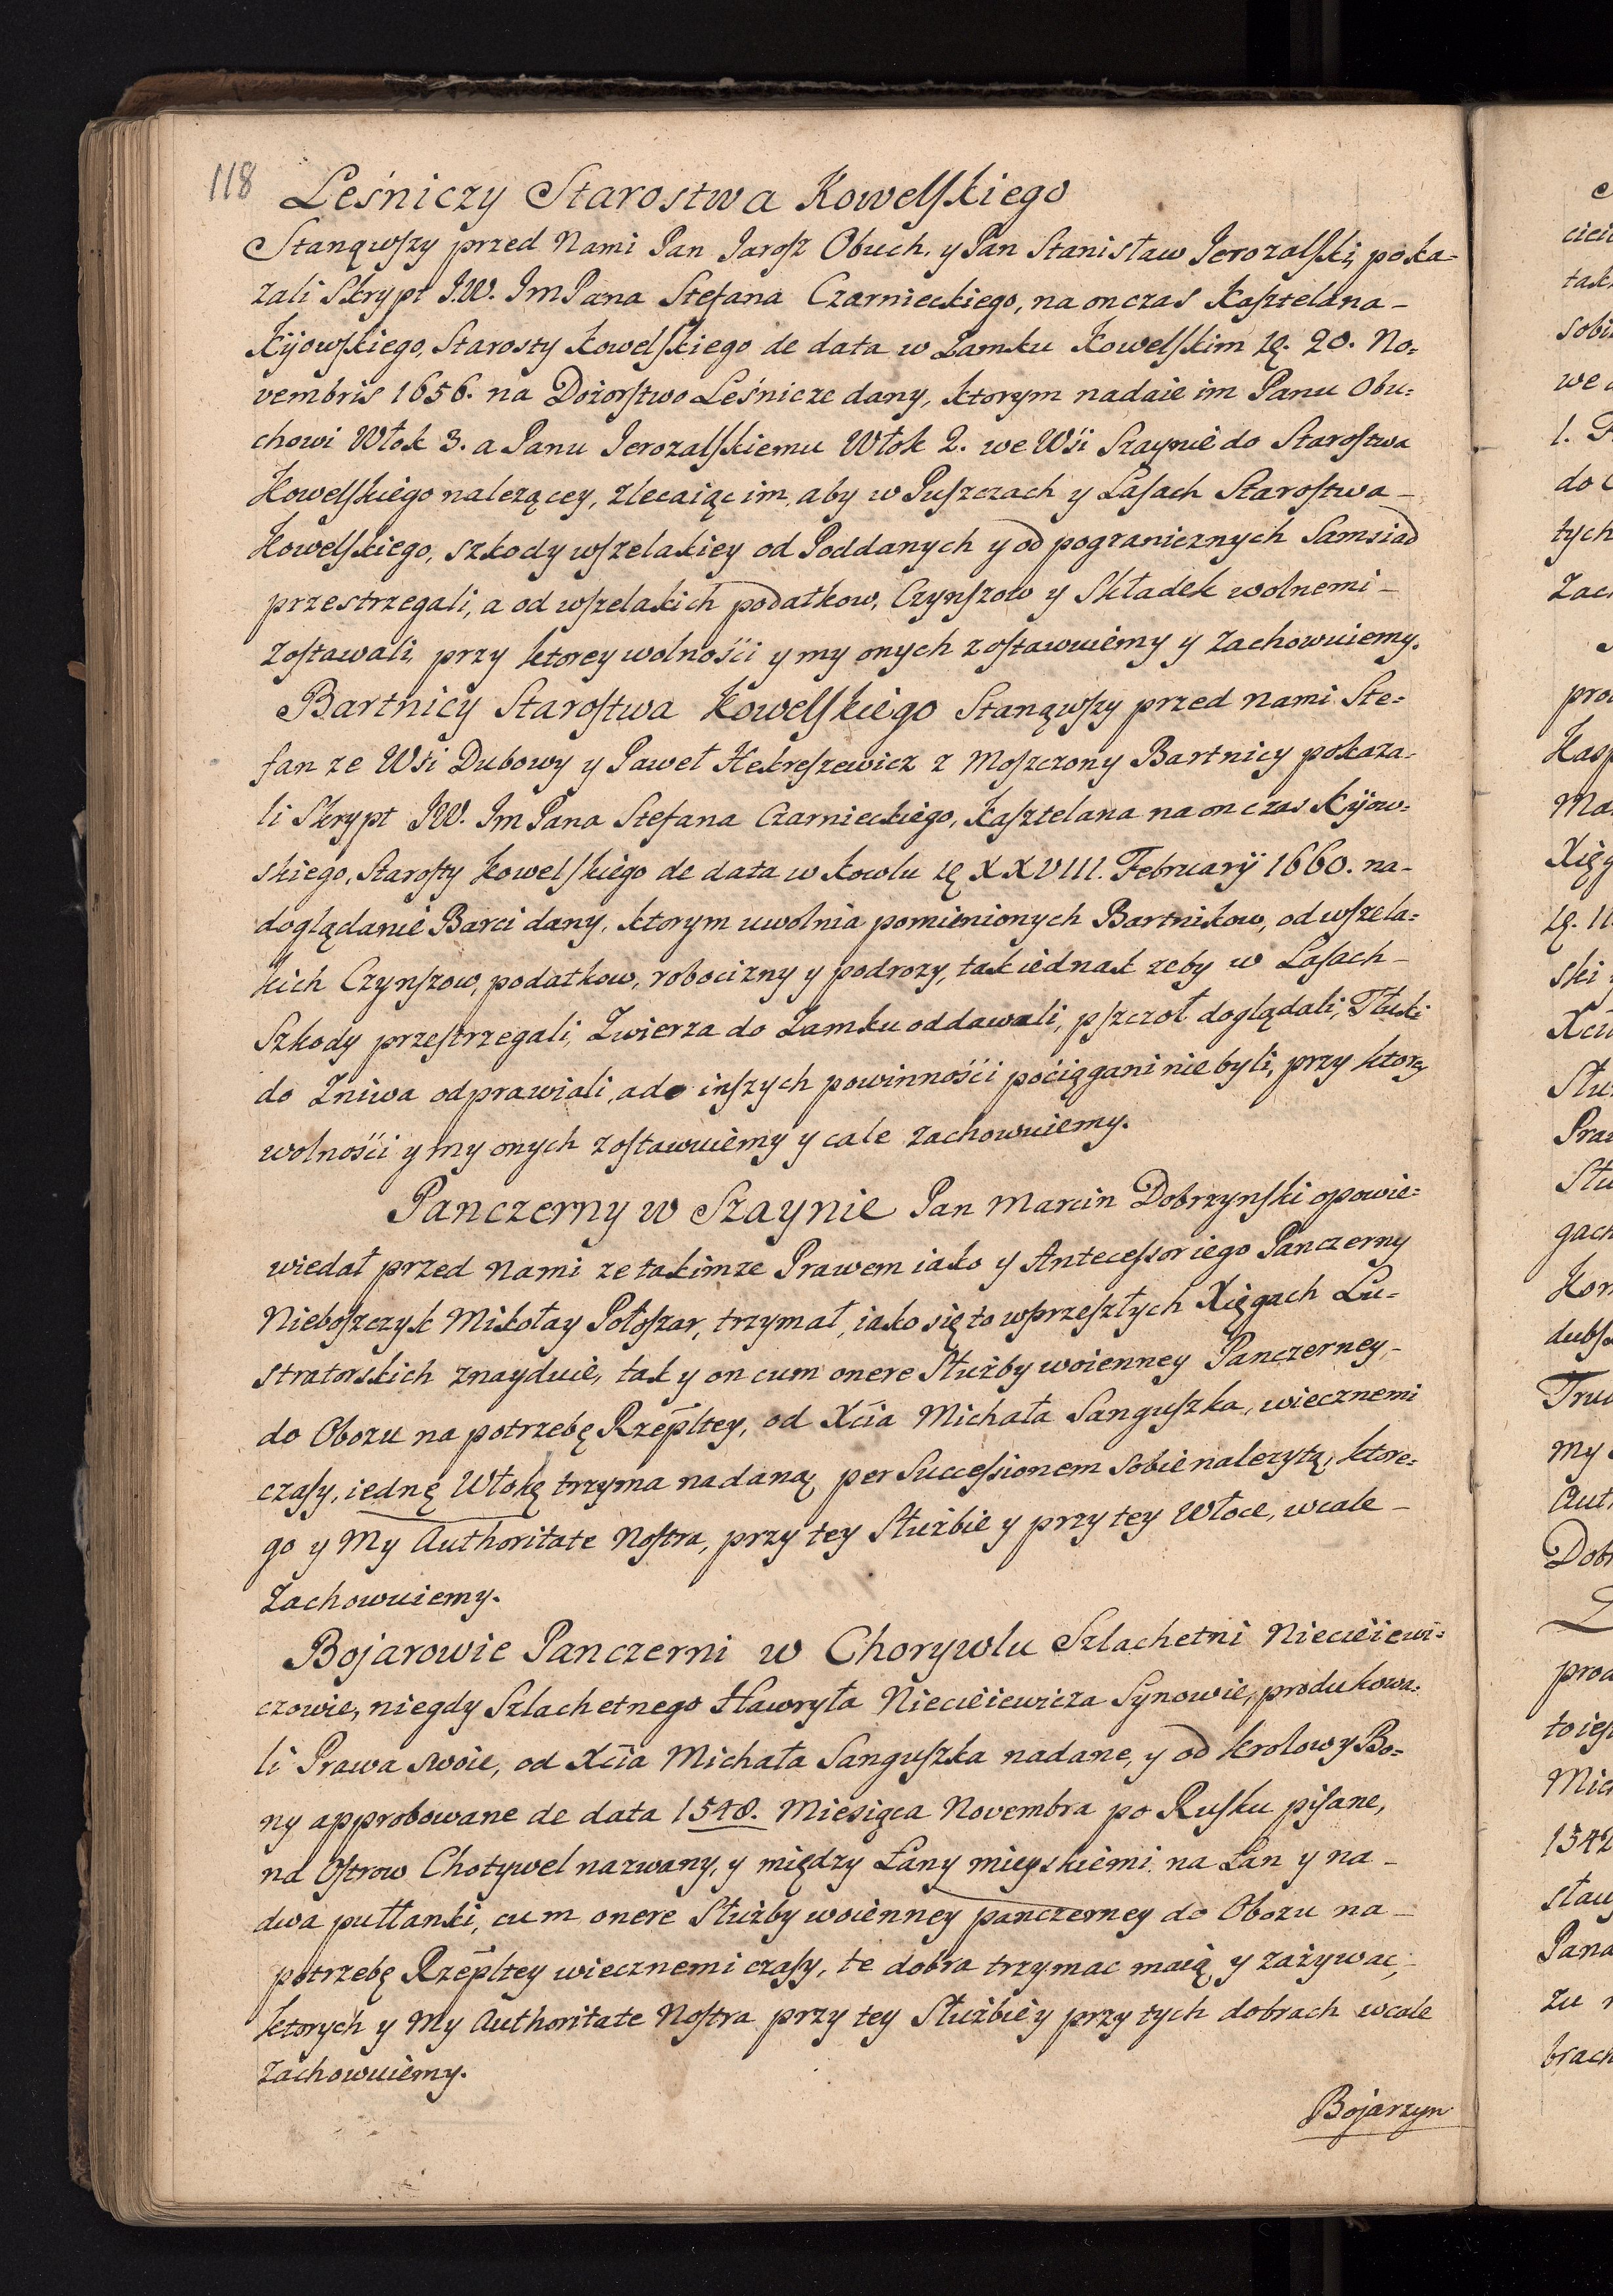 118
Leśniczy Starostwa Kowelſkiego
Stanąwſzy przed Nami Pan Jaroſz Obuch. y Pan Stanisław Jerozalſki, poka-
zali Skrypt J.W. Jm Pana Stefana Czarnieckiego, na on czas Kaſztelana -
Kijowſkiego, Starosty Kowelſkiego de data w Zamku Kowelſkim 20. No=
vembris 1656. na Dozorſtwo Leśnicze dany, ktorym nadaie im Panu Obu=
chowi Włok 3. a Panu Jerozalſkiemu Włok 2. we Wśi Szaynie do Staroſtwa
Kowelſkiego nalezącey, zlecaiąc im, aby w Puſzczach y Laſach Staroſtwa -
Kowelſkiego, szkody wſzelakiey od Poddanych y od pogranicznych Samsiad
przestrzegali, a od wſzelakich podatkow, Czynſzow y Składek wolnemi -
zoſtawali, przy ktorey wolnośći y my onych zoſtawuiemy y zachowuiemy.
Bartnicy Staroſtwa Kowelſkiego Stanąwſzy przed nami Ste=
fan ze Wśi Dubowy y Paweł Hekreſzewicz z Moſzczony Bartnicy pokaza-
li Skrypt JW. Jm Pana Stefana Czarnieckiego, Kaſztelana na on czas Kijow-
skiego, Staroſty Kowelſkiego de data w Kowlu XXVIII. Februarij 1660. na-
doglądanie Barci dany, ktorym uwolnia pomienionych Bartnikow, od wſzela=
kich Czynſzow, podatkow, robocizny y podrozy, tak iednak zeby w Laſach -
Szkody przeſtrzegali, Zwierza do Zamku oddawali, pſzczoł doglądali, Tłuki
do Zniwa odprawiali, a do inſzych powinnośći poćiągani nie byli, przy ktorey
wolnośći y my onych zoſtawuiemy y cale zachowuiemy.
Panczerny w Szaynie Pan Marcin Dobrzynſki opowie=
wiedał przed Nami ze takimze Prawem iako y Anteceſsor iego Panczerny
Nieboſzczyk Mikołay Połoſzar, trzymał, iako się to wprzeſzłych Xięgach Lu=
stratorskich znayduie, tak y on cum onere Służby woienney Panczerney, -
do Obozu na potrzebę Rzepltey, od Xcia Michała Sanguſzka, wiecznemi
czaſy, iednę Włokę trzyma nadaną per Succeſsionem sobie nalezytą, ktore=
go y My Authoritate Noſtra, przy tey Służbie y przy tey Włoce, wcale -
Zachowuiemy.
Bojarowie Panczerni w Chorywlu Szlachetni Niecieiewi=
czowie, niegdy Szlachetnego Hawryła Niecieiewicza Synowie, produkowa=
li Prawa swoie, od Xcia Michała Sanguſzka nadane, y od Krolowy Bo=
ny approbowane de data 1548. Miesiąca Novembra po Ruſku piſane,
na Oſtrow Chotywel nazwany, y między Łany mieyskiemi na Łan y na -
dwa pułłanki, cum onere Służby woienney panczerney do Obozu na -
potrzebę Rzepltey wiecznemi czaſy, te dobra trzymac maią y zażywac, -
ktorych y My Authoritate Noſtra przy tey Służbie y przy tych dobrach wcale
zachowuiemy.
Bojarzyn